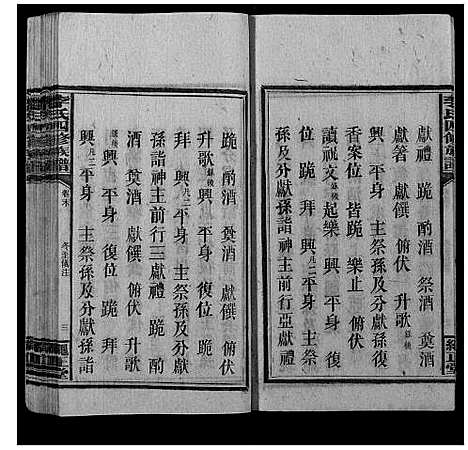 李氏四修族譜
獻禮 跪 酌酒 祭酒 奠酒
獻箸 獻饌 俯伏 升歌歌後
興 平身 主祭孫及分獻
香案位 皆跪 樂止
讀祝文讀後起樂 興 平身 復
位 跪 拜 興凡二平身 主祭
孫及分獻孫詣 神主前行亞獻禮
跪 酌酒 奠酒 獻饌 俯伏
升歌歌後 興 平身 復位 跪
拜 興凡二平身 主祭孫及分獻
孫詣 神主前行三獻禮 跪 酌
酒 奠酒 獻饌 俯伏 升歌
歌後 興 平身 復位 跪 拜
興凡二平身 主祭孫及分獻孫詣
李氏四修族譜 卷末 冬至儀注 三